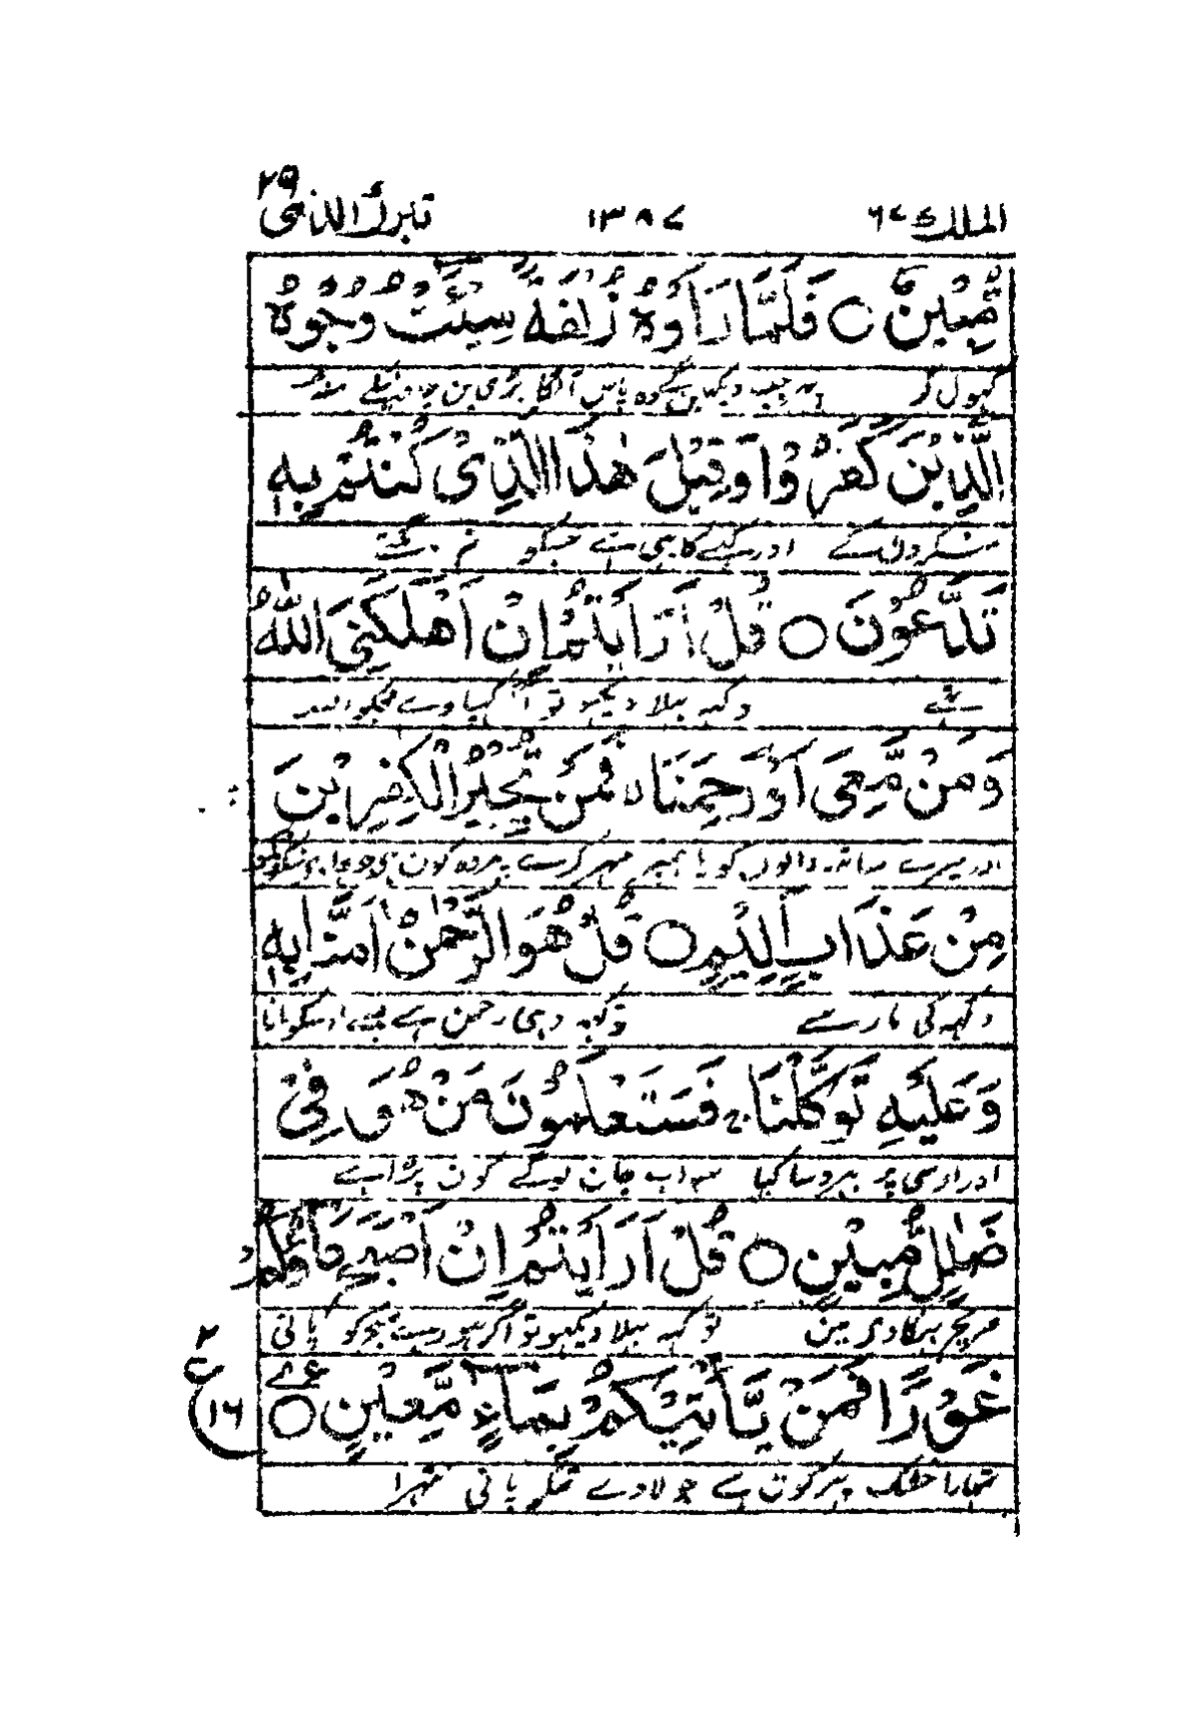 الملك ٦٧ ١٣٨٧ تبرك الذى ٢٩
مُّبِيْنٌ ○ فَلَمَّا رَاَوْهُ زُلْفَةً سِيْٓـَٔتْ وُجُوْهُ
کہول کر پہر جب دیکہین گے وہ پاس آلگا بری بن جاوینگے منہ
الَّذِيْنَ كَفَرُوْا وَقِيْلَ هٰذَا الَّذِىْ كُنْتُمْ بِهٖ
منکرون کے اور کہیے گا یہی ہے جسکو تم
تَدَّعُوْنَ ○ قُلْ اَرَاَيْتُمْ اِنْ اَهْلَكَنِىَ اللّٰهُ
تہے تو کہہ بہلا دیکہو تو اگر کہپاوے مجکو اللہ
وَمَنْ مَّعِىَ اَوْ رَحِمَنَا ۙ فَمَنْ يُّجِيْرُ الْكٰفِرِيْنَ
اور میرے ساتہہ والون کو یا ہمپر مہر کرے پہر وہ کون ہی جو بچاوے منکرونکو
مِنْ عَذَابٍ اَلِيْمٍ ○ قُلْ هُوَ الرَّحْمٰنُ اٰمَنَّا بِهٖ
دکہہ کی مار سے تو کہہ وہی رحمن ہے ہمنے اوسکو مانا
وَعَلَيْهِ تَوَكَّلْنَا ۚ فَسَتَعْلَمُوْنَ مَنْ هُوَ فِىْ
اور اوسی پر بہروسا کیا سو اب جان لوگے کون پڑا ہے
ضَلٰلٍ مُّبِيْنٍ ○ قُلْ اَرَاَيْتُمْ اِنْ اَصْبَحَ مَآؤُكُمْ
صریح بہکاوی مین تو کہہ بہلا دیکہو تو اگر ہو رہے صبح کو پانی
غَوْرًا فَمَنْ يَّاْتِيْكُمْ بِمَآءٍ مَّعِيْنٍ ○ ع
٢ ع ١٦
تمہارا خشک پہر کون ہے جو لاوے تمکو پانی نتہرا